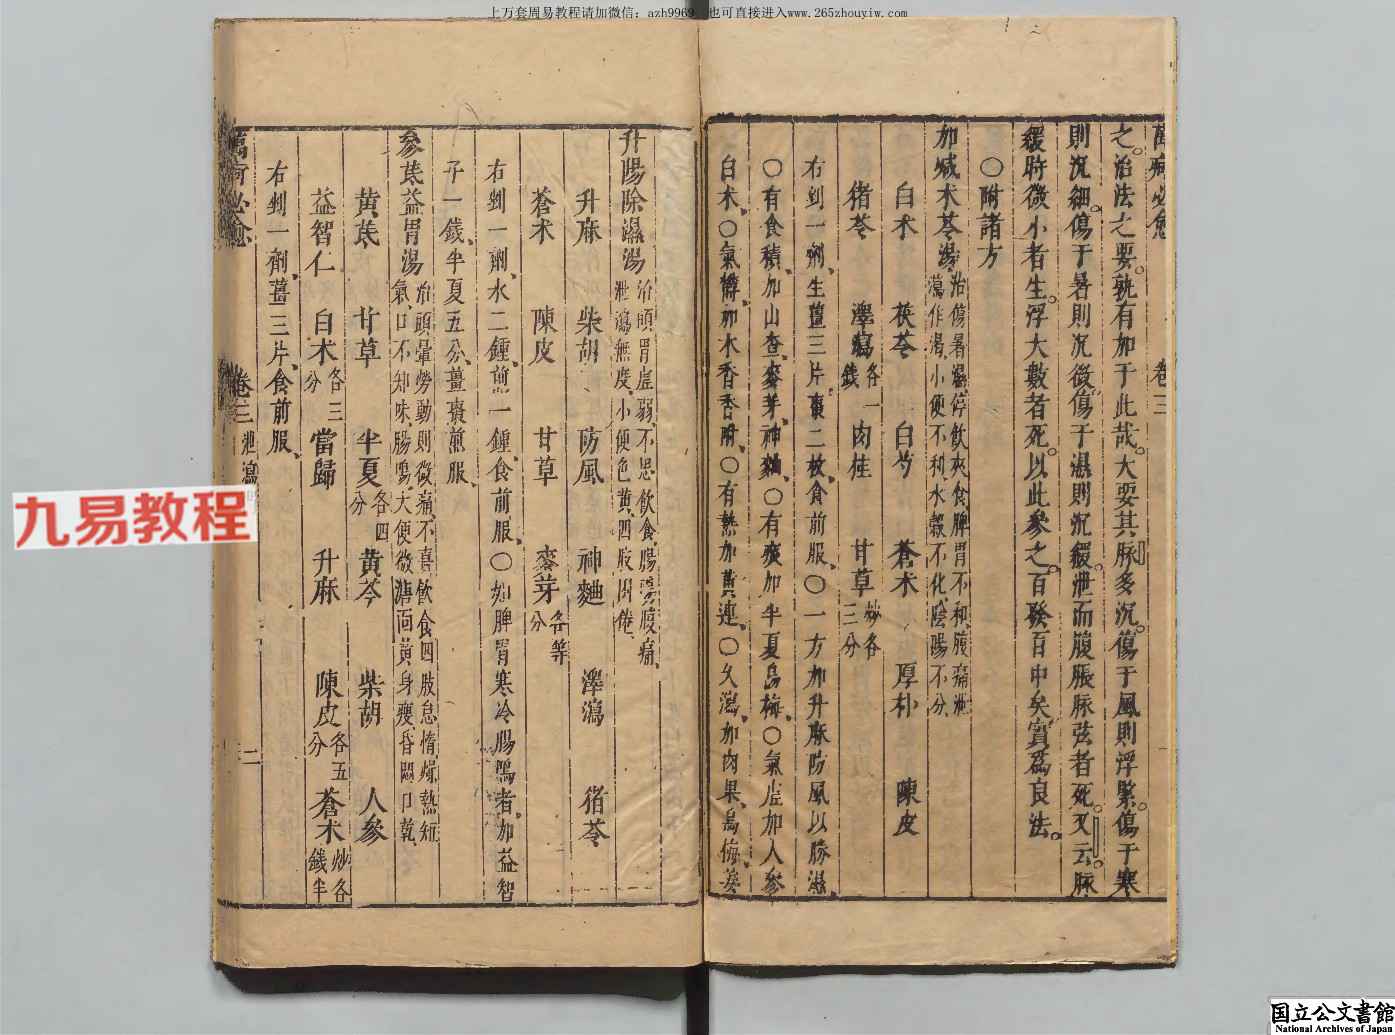 上万套周易教程请加微信：azh9969，也可直接进入www.265zhouyiw.com
萬病必愈 卷三
之治法之要孰有加于此哉大要其脉多沉傷于風則浮緊傷于寒
則沉細傷于暑則沉微傷于濕則沉緩泄而腹脹脉弦者死又云脉
緩時微小者生浮大數者死以此參之百發百中矣實爲良法
〇附諸方
加減木苓湯 治傷暑濕停飲夾食脾胃不和腹痛泄
瀉作渴小便不利水穀不化陰陽不分
白术 茯苓 白芍 蒼术 厚朴 陳皮
猪苓 澤瀉各一錢 肉桂 甘草炒各三分
右剉一劑生薑三片棗二枚食前服〇一方加升麻防風以勝濕
〇有食積加山查麥芽神麯〇有痰加半夏烏梅〇氣虛加人參
白术〇氣滯加木香香附〇有熱加黄連〇久瀉加肉果烏梅
升陽除濕湯 治頭胃虛弱不思飲食腸鳴腹痛
泄瀉無度小便色黄四肢困倦
升麻 柴胡 防風 神麯 澤瀉 猪苓
蒼术 陳皮 甘草 麥芽各等分
右剉一劑水二鍾煎一鍾食前服〇如脾胃寒冷腸鳴者加益智
子一錢半夏五分薑棗煎服
參茋益胃湯 治頭暈勞動則微痛不喜飲食四肢怠惰燥熱短
氣口不知味腸鳴大便微溏面黄身瘦昏悶口乾
黄茋 甘草 半夏各四分 黄芩 柴胡 人參
益智仁 白术各三分 當歸 升麻 陳皮各五分 蒼术炒各錢半
右剉一劑薑三片食前服
萬病必愈 卷三 泄瀉 二
九易教程
国立公文書館
National Archives of Japan